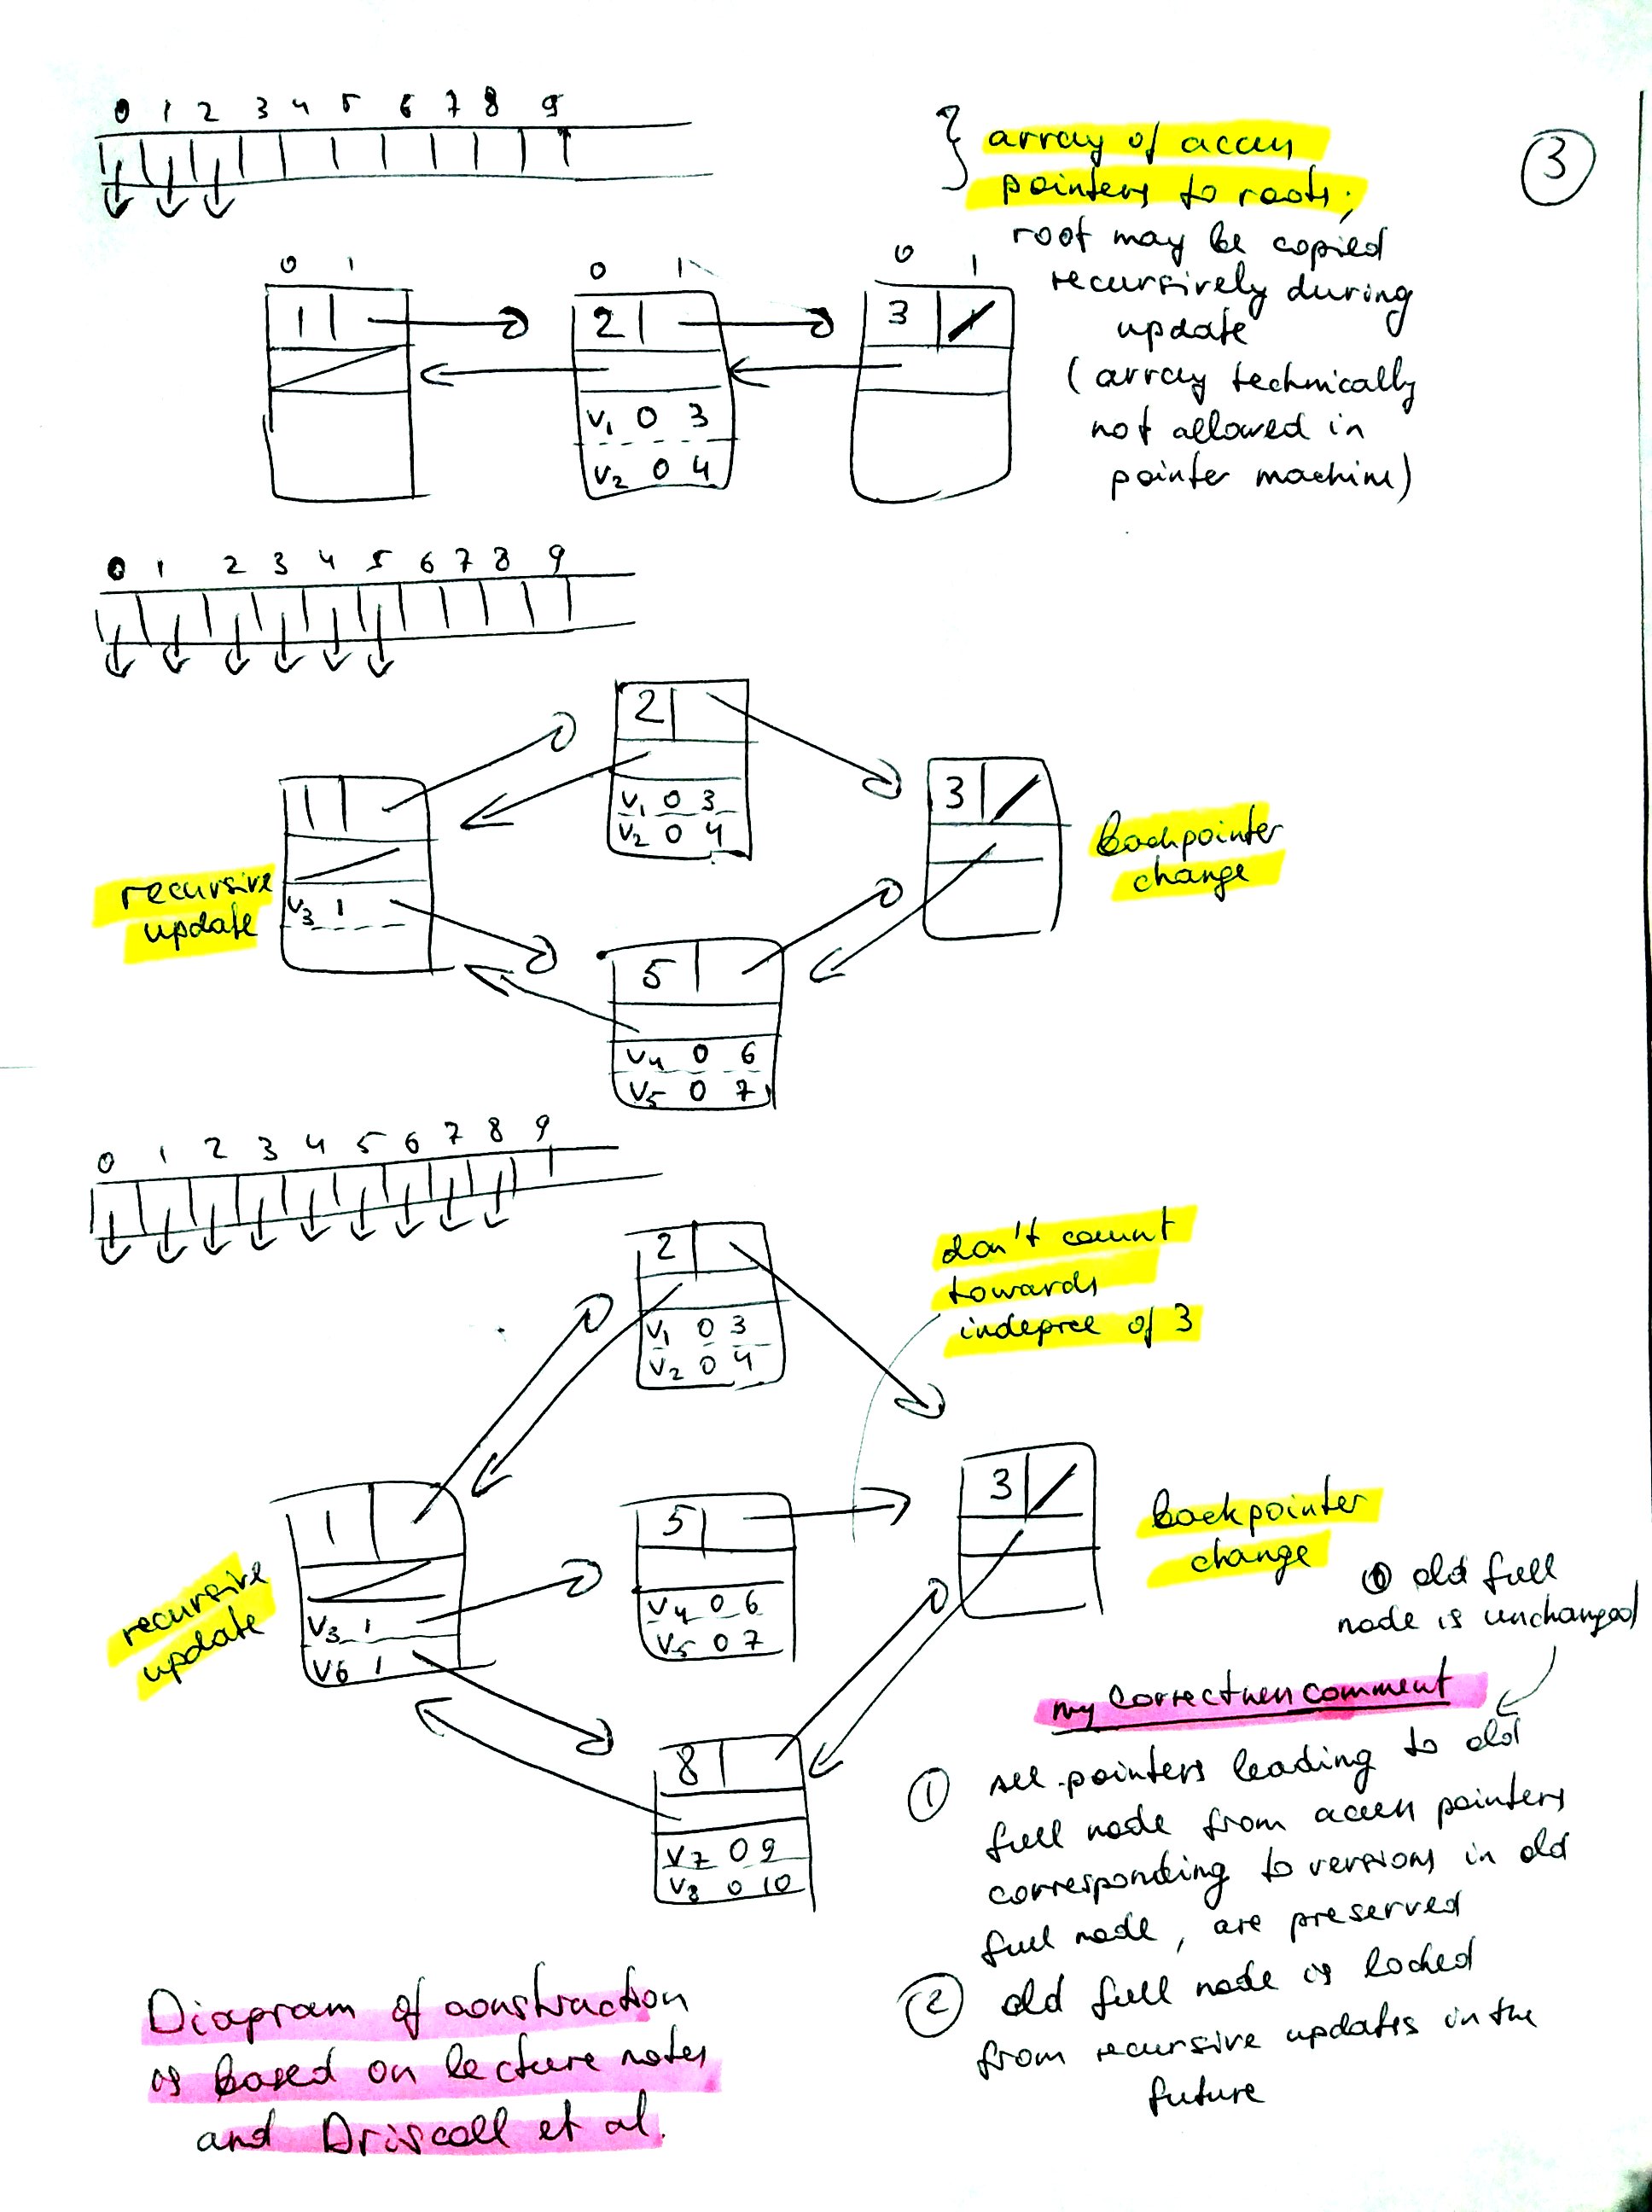 0 1 2 3 4 5 6 7 8 9
} array of access
pointers to roots;
root may be copied
recursively during
update
(array technically
not allowed in
pointer machine)
3
0 1
0 1
0 1
1
2
3
v1 0 3
v2 0 4
0 1 2 3 4 5 6 7 8 9
2
v1 0 3
v2 0 4
1
v3 1
3
backpointer
change
recursive
update
5
v4 0 6
v5 0 7
0 1 2 3 4 5 6 7 8 9
2
v1 0 3
v2 0 4
don't count
towards
indegree of 3
1
v3 1
v6 1
5
v4 0 6
v5 0 7
3
backpointer
change
recursive
update
8
v7 0 9
v8 0 10
old full
node is unchanged
my correctness comment
① All pointers leading to old
full node from access pointers
corresponding to versions in old
full node, are preserved
② old full node is locked
from recursive updates in the
future
Diagram of construction
is based on lecture notes
and Driscoll et al.